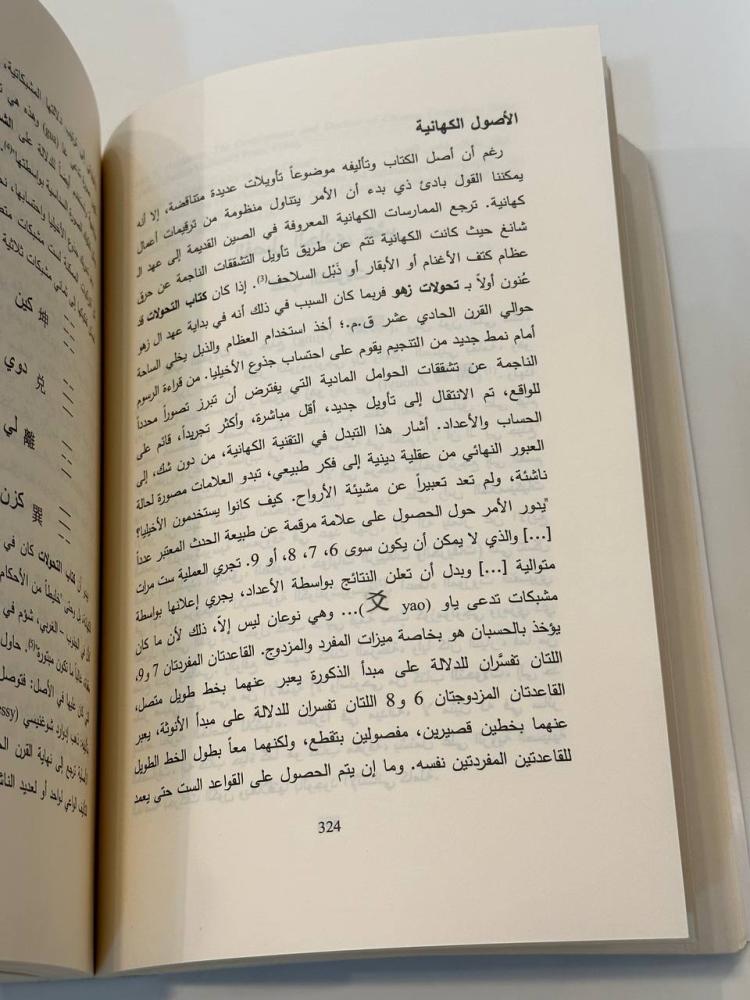 الأصول الكهانية
رغم أن أصل الكتاب وتأليفه موضوعاً تأويلات عديدة متناقضة، إلا أنه
يمكننا القول بادئ ذي بدء أن الأمر يتناول منظومة من ترقيمات أعمال
كهانية. ترجع الممارسات الكهانية المعروفة في الصين القديمة إلى عهد ال
شانغ حيث كانت الكهانية تتم عن طريق تأويل التشققات الناجمة عن حرق
عظام كتف الأغنام أو الأبقار أو ذَبْل السلاحف(3). إذا كان كتاب التحولات قد
عُنون أولاً بـ تحولات زهو فربما كان السبب في ذلك أنه في بداية عهد ال زهو
حوالي القرن الحادي عشر ق.م.؛ أخذ استخدام العظام والذبل يخلي الساحة
أمام نمط جديد من التنجيم يقوم على احتساب جذوع الأخيليا. من قراءة الرسوم
الناجمة عن تشققات الحوامل المادية التي يفترض أن تبرز تصوراً محدداً
للواقع، تم الانتقال إلى تأويل جديد، أقل مباشرة، وأكثر تجريداً، قائم على
الحساب والأعداد. أشار هذا التبدل في التقنية الكهانية، من دون شك، إلى
العبور النهائي من عقلية دينية إلى فكر طبيعي، تبدو العلامات مصورة لحالة
ناشئة، ولم تعد تعبيراً عن مشيئة الأرواح. كيف كانوا يستخدمون الأخيليا؟
"يدور الأمر حول الحصول على علامة مرقمة عن طبيعة الحدث المعتبر عدداً
[...] والذي لا يمكن أن يكون سوى 6، 7، 8، أو 9. تجري العملية ست مرات
متوالية [...] وبدل أن تعلن النتائج بواسطة الأعداد، يجري إعلانها بواسطة
مشبكات تدعى ياو (yao 爻)... وهي نوعان ليس إلاّ، ذلك لأن ما كان
يؤخذ بالحسبان هو بخاصة ميزات المفرد والمزدوج. القاعدتان المفردتان 7 و9،
اللتان تفسَّران للدلالة على مبدأ الذكورة يعبر عنهما بخط طويل متصل،
القاعدتان المزدوجتان 6 و8 اللتان تفسران للدلالة على مبدأ الأنوثة، يعبر
عنهما بخطين قصيرين، مفصولين بتقطع، ولكنهما معاً بطول الخط الطويل
للقاعدتين المفردتين نفسه. وما إن يتم الحصول على القواعد الست حتى يعمد
324
كين
دوي 兌
لي 離
كزن 巽